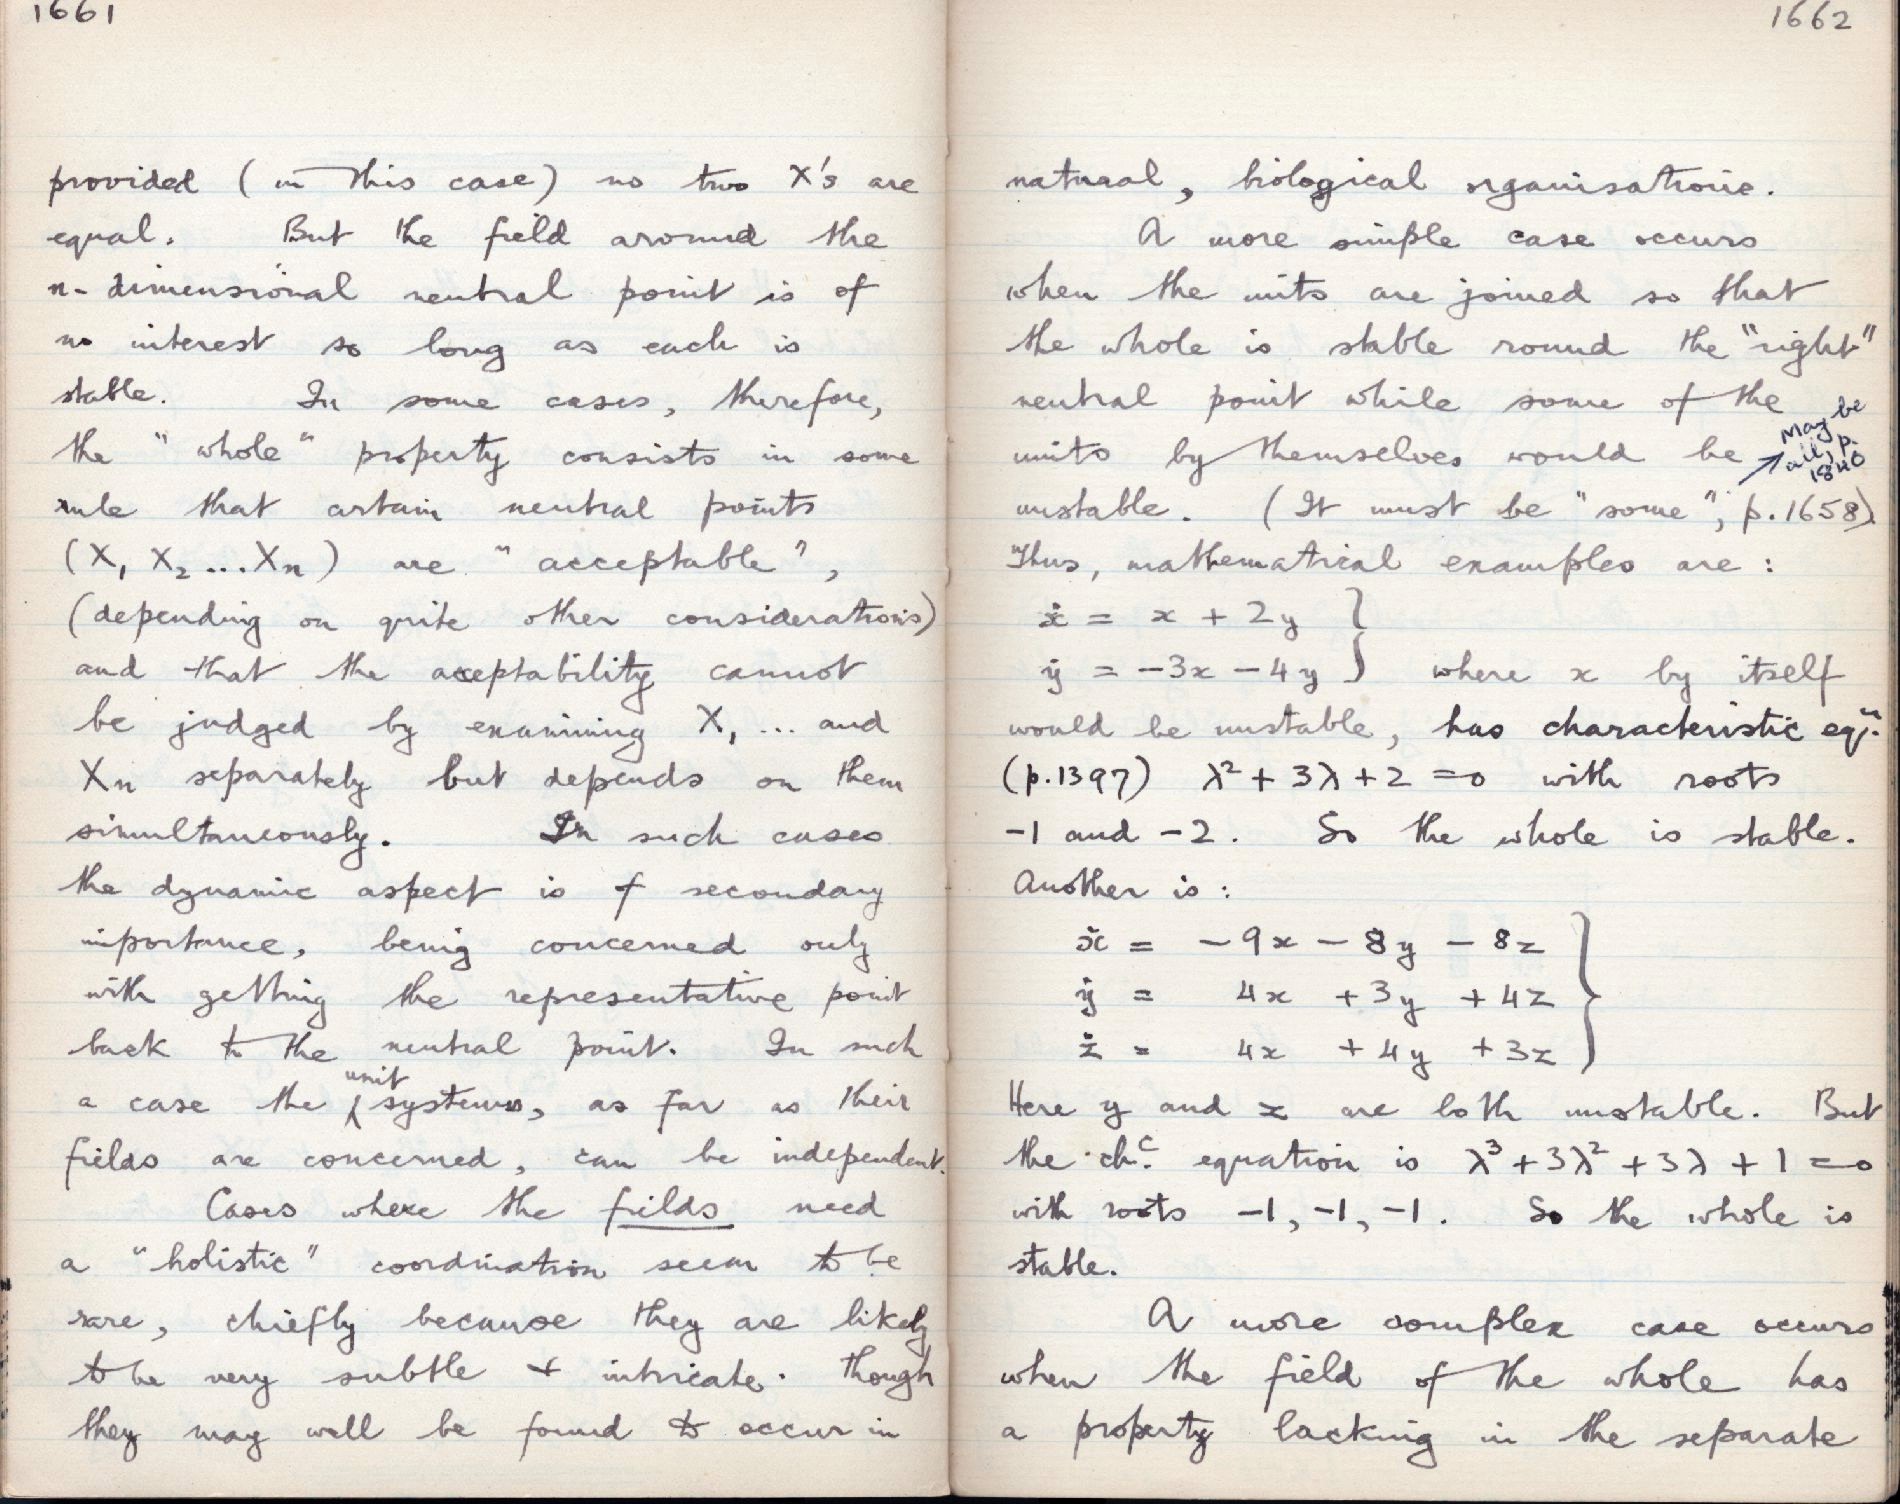 1661
provided (in this case) no two X's are
equal. But the field around the
n-dimensional neutral point is of
no interest so long as each is
stable. In some cases, therefore,
the "whole" property consists in some
rule that certain neutral points
(X₁ X₂ ... Xₙ) are "acceptable",
(depending on quite other considerations)
and that the acceptability cannot
be judged by examining X₁ ... and
Xₙ separately but depends on them
simultaneously. In such cases
the dynamic aspect is of secondary
importance, being concerned only
with getting the representative point
back to the neutral point. In such
a case the unit systems, as far as their
fields are concerned, can be independent.
Cases where the fields need
a "holistic" coordination seem to be
rare, chiefly because they are likely
to be very subtle + intricate. Though
they may well be found to occur in
1662
natural, biological organisations.
A more simple case occurs
when the units are joined so that
the whole is stable round the "right"
neutral point while some of the
units by themselves would be
May be
all, p.
1840
unstable. (It must be "some", p.1658).
Thus, mathematical examples are:
ẋ = x + 2y
ẏ = -3x - 4y } where x by itself
would be unstable, has characteristic eqⁿ.
(p.1397) λ² + 3λ + 2 = 0 with roots
-1 and -2. So the whole is stable.
Another is:
ẋ = -9x - 8y - 8z
ẏ = 4x + 3y + 4z
ż = 4x + 4y + 3z
Here y and z are both unstable. But
the ch.ᶜ equation is λ³ + 3λ² + 3λ + 1 = 0
with roots -1, -1, -1. So the whole is
stable.
A more complex case occurs
when the field of the whole has
a property lacking in the separate